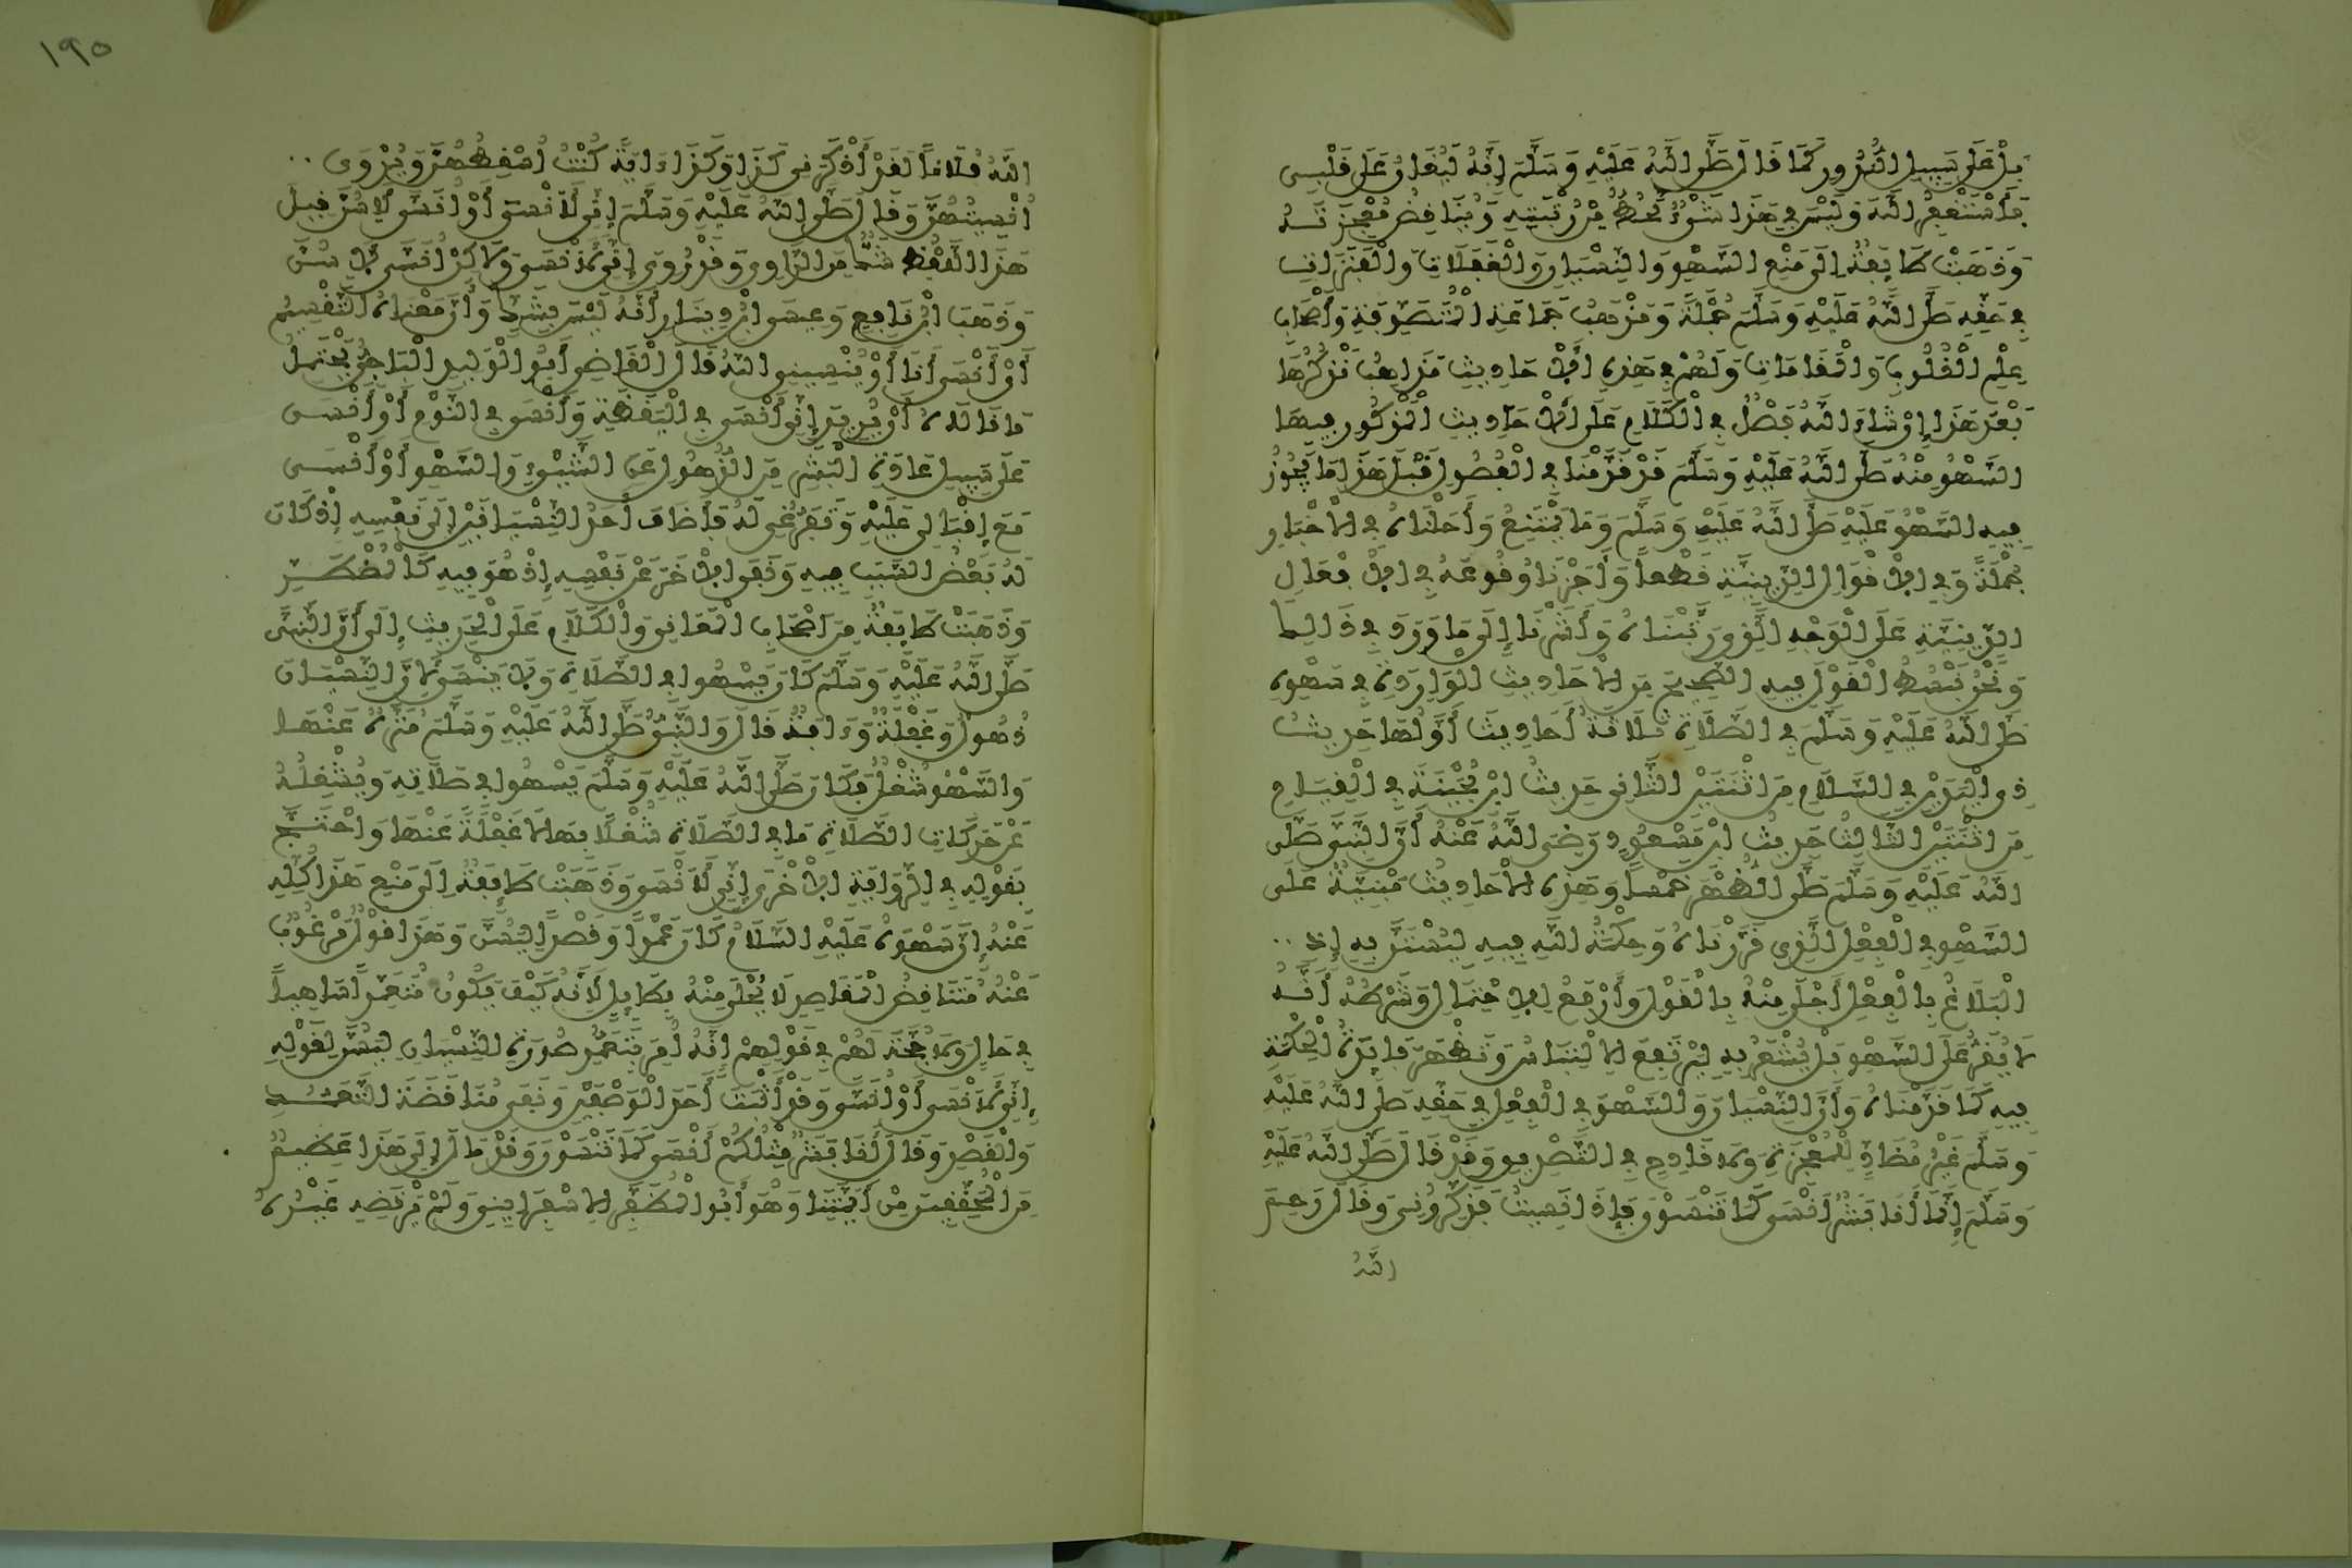 بَلْ عَلَى سَبِيلِ النُّدُورِ كَمَا قَالَ صَلَّى اللَّهُ عَلَيْهِ وَسَلَّمَ إِنَّهُ لَيُغَانُ عَلَى قَلْبِي
فَأَسْتَغْفِرُ اللَّهَ وَلَيْسَ فِي هَذَا شَيْءٌ يَحُطُّ مِنْ رُتْبَتِهِ وَيُنَاقِضُ مُعْجِزَتَهُ
وَذَهَبَتْ طَائِفَةٌ إِلَى مَنْعِ السَّهْوِ وَالنِّسْيَانِ وَالْغَفَلَاتِ وَالْفَتَرَاتِ
فِي حَقِّهِ صَلَّى اللَّهُ عَلَيْهِ وَسَلَّمَ جُمْلَةً وَمَذْهَبُ جَمَاعَةِ الْمُتَصَوِّفَةِ وَأَصْحَابِ
عِلْمِ الْقُلُوبِ وَالْمَقَامَاتِ وَلَهُمْ فِي هَذِهِ الْأَحَادِيثِ مَذَاهِبُ نَذْكُرُهَا
بَعْدَ هَذَا إِنْ شَاءَ اللَّهُ فَصْلٌ فِي الْكَلَامِ عَلَى الْأَحَادِيثِ الْمَذْكُورِ فِيهَا
السَّهْوُ مِنْهُ صَلَّى اللَّهُ عَلَيْهِ وَسَلَّمَ قَدْ قَدَّمْنَا فِي الْفُصُولِ قَبْلَ هَذَا مَا يَجُوزُ
فِيهِ السَّهْوُ عَلَيْهِ صَلَّى اللَّهُ عَلَيْهِ وَسَلَّمَ وَمَا يَمْتَنِعُ وَأَحَلْنَاهُ فِي الْأَخْبَارِ
جُمْلَةً وَفِي الْأَقْوَالِ الدِّينِيَّةِ قَطْعاً وَأَجَزْنَا وُقُوعَهُ فِي الْأَفْعَالِ
الدِّينِيَّةِ عَلَى الْوَجْهِ الَّذِي رَتَّبْنَاهُ وَأَشَرْنَا إِلَى مَا وَرَدَ فِي ذَالِكَ
وَنَحْنُ نَبْسُطُ الْقَوْلَ فِيهِ الصَّحِيحُ مِنَ الْأَحَادِيثِ الْوَارِدَةِ فِي سَهْوِهِ
صَلَّى اللَّهُ عَلَيْهِ وَسَلَّمَ فِي الصَّلَاةِ ثَلَاثَةُ أَحَادِيثَ أَوَّلُهَا حَدِيثُ
ذِي الْيَدَيْنِ فِي السَّلَامِ مِنِ اثْنَتَيْنِ الثَّانِي حَدِيثُ ابْنِ بُحَيْنَةَ فِي الْقِيَامِ
مِنِ اثْنَتَيْنِ الثَّالِثُ حَدِيثُ ابْنِ مَسْعُودٍ رَضِيَ اللَّهُ عَنْهُ أَنَّ النَّبِيَّ صَلَّى
اللَّهُ عَلَيْهِ وَسَلَّمَ صَلَّى الظُّهْرَ خَمْساً وَهَذِهِ الْأَحَادِيثُ مَبْنِيَّةٌ عَلَى
السَّهْوِ فِي الْفِعْلِ الَّذِي قَرَّرْنَاهُ وَحِكْمَةُ اللَّهِ فِيهِ لِيُسْتَنَّ بِهِ إِذِ
الْبَلَاغُ بِالْفِعْلِ أَجْلَى مِنْهُ بِالْقَوْلِ وَأَرْفَعُ لِلْاحْتِمَالِ وَشَرْطُهُ أَنَّهُ
لَا يُقَرُّ عَلَى السَّهْوِ بَلْ يُشْعَرُ بِهِ لِيَرْتَفِعَ الْالْتِبَاسُ وَتَظْهَرَ فَائِدَةُ الْحِكْمَةِ
فِيهِ كَمَا قَدَّمْنَاهُ وَأَنَّ النِّسْيَانَ وَالسَّهْوَ فِي الْفِعْلِ فِي حَقِّهِ صَلَّى اللَّهُ عَلَيْهِ
وَسَلَّمَ غَيْرُ مُضَادٍّ لِلْمُعْجِزَةِ وَلَا قَادِحٍ فِي التَّصْدِيقِ وَقَدْ قَالَ صَلَّى اللَّهُ عَلَيْهِ
وَسَلَّمَ إِنَّمَا أَنَا بَشَرٌ أَنْسَى كَمَا تَنْسَوْنَ فَإِذَا نَسِيتُ فَذَكِّرُونِي وَقَالَ رَحِمَ
اللَّهُ
١٩٥
اللَّهُ فُلَاناً لَقَدْ أَذْكَرَنِي كَذَا وَكَذَا ءَايَةً كُنْتُ أُسْقِطُهُنَّ وَيُرْوَى
أُنْسِيتُهُنَّ وَقَالَ صَلَّى اللَّهُ عَلَيْهِ وَسَلَّمَ إِنِّي لَأَنْسَى أَوْ أُنَسَّى لِأَسُنَّ قِيلَ
هَذَا اللَّفْظُ شَكٌّ مِنَ الرَّاوِي وَقَدْ رُوِيَ إِنِّي لَا أَنْسَى وَلَاكِنْ أُنَسَّى لِأَسُنَّ
وَذَهَبَ ابْنُ نَافِعٍ وَعِيسَى ابْنُ دِينَارٍ أَنَّهُ لَيْسَ بِشَكٍّ وَأَنَّ مَعْنَاهُ التَّقْسِيمُ
أَوْ أَنْسَى أَنَا أَوْ يُنْسِينِي اللَّهُ قَالَ الْقَاضِي أَبُو الْوَلِيدِ الْبَاجِيُّ يَحْتَمِلُ
مَا قَالَاهُ أَنْ يُرِيدَ إِنِّي أَنْسَى فِي الْيَقَظَةِ وَأُنْسَى فِي النَّوْمِ أَوْ أَنْسَى
عَلَى سَبِيلِ عَادَةِ الْبَشَرِ مِنَ الذُّهُولِ عَنِ الشَّيْءِ وَالسَّهْوِ أَوْ أُنْسَى
مَعَ إِقْبَالِي عَلَيْهِ وَتَفَرُّغِي لَهُ فَأَضَافَ أَحَدَ النِّسْيَانَيْنِ إِلَى نَفْسِهِ إِذْ كَانَ
لَهُ بَعْضُ السَّبَبِ فِيهِ وَنَفَى الْأَخَرَ عَنْ نَفْسِهِ إِذْ هُوَ فِيهِ كَالْمُضْطَرِّ
وَذَهَبَتْ طَائِفَةٌ مِنَ اَصْحَابِ الْمَعَانِي وَالْكَلَامِ عَلَى الْحَدِيثِ إِلَى أَنَّ النَّبِيَّ
صَلَّى اللَّهُ عَلَيْهِ وَسَلَّمَ كَانَ يَسْهُوا فِي الصَّلَاةِ وَلَا يَنْسَى لِأَنَّ النِّسْيَانَ
ذُهُولٌ وَغَفْلَةٌ وَءَافَةٌ قَالَ وَالنَّبِيُّ صَلَّى اللَّهُ عَلَيْهِ وَسَلَّمَ مُنَزَّهٌ عَنْهَا
وَالسَّهْوُ شُغْلٌ فَكَانَ صَلَّى اللَّهُ عَلَيْهِ وَسَلَّمَ يَسْهُوا فِي صَلَاتِهِ وَيَشْغَلُهُ
عَنْ حَرَكَاتِ الصَّلَاةِ مَا فِي الصَّلَاةِ شُغْلاً بِهَا لَا غَفْلَةً عَنْهَا وَاحْتَجَّ
بِقَوْلِهِ فِي الرِّوَايَةِ الْأُخْرَى إِنِّي لَا أَنْسَى وَذَهَبَتْ طَائِفَةٌ إِلَى مَنْعِ هَذَا كُلِّهِ
عَنْهُ إِنَّ سَهْوَهُ عَلَيْهِ السَّلَامُ كَانَ عَمْداً وَقَصْداً لِيَسُنَّ وَهَذَا قَوْلٌ مَرْغُوبٌ
عَنْهُ مُتَنَاقِضُ الْمَقَاصِدِ لَا يُحْلَى مِنْهُ بِطَائِلٍ لِأَنَّهُ كَيْفَ يَكُونُ مُتَعَمِّداً سَاهِياً
فِي حَالٍ وَلَا حُجَّةَ لَهُمْ فِي قَوْلِهِمْ إِنَّهُ أُمِرَ بِتَعَمُّدِ صُورَةِ النِّسْيَانِ لِيَسُنَّ لِقَوْلِهِ
إِنِّي لَأَنْسَى أَوْ أُنَسَّى وَقَدْ أَثْبَتَ أَحَدَ الْوَصْفَيْنِ وَنَفَى مُنَاقَضَةَ التَّعَمُّدِ
وَالْقَصْدِ وَقَالَ إِنَّمَا أَنَا بَشَرٌ مِثْلُكُمْ أَنْسَى كَمَا تَنْسَوْنَ وَقَدْ مَالَ إِلَى هَذَا عَظِيمٌ
مِنَ الْمُحَقِّقِينَ مِنْ أَئِمَّتِنَا وَهُوَ أَبُو الْمُظَفَّرِ الْإِسْفَرَايِنِيُّ وَلَمْ يَرْتَضِهِ غَيْرُهُ